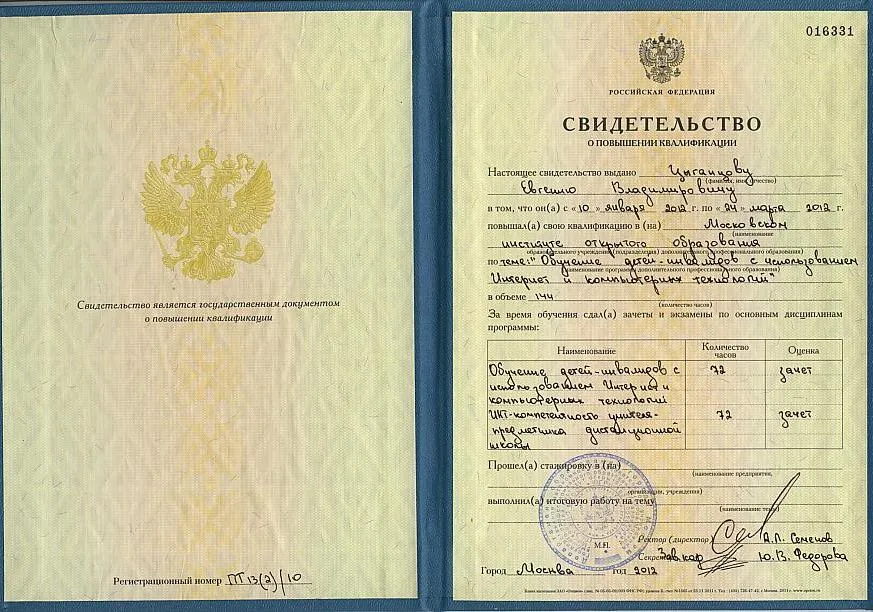 Свидетельство является государственным документом
о повышении квалификации
Регистрационный номер ПТ 13(2)/10
016331
РОССИЙСКАЯ ФЕДЕРАЦИЯ
СВИДЕТЕЛЬСТВО
О ПОВЫШЕНИИ КВАЛИФИКАЦИИ
Настоящее свидетельство выдано Цыганцову
(фамилия, имя, отчество)
Евгению Владимировичу
в том, что он(а) с «10» января 2012 г. по «24» марта 2012 г.
повышал(а) свою квалификацию в (на) Московском
(наименование
институте открытого образования
образовательного учреждения (подразделения) дополнительного профессионального образования)
по теме: "Обучение детей-инвалидов с использованием
(наименование программы дополнительного профессионального образования)
Интернет и компьютерных технологий"
в объеме 144
(количество часов)
За время обучения сдал(а) зачеты и экзамены по основным дисциплинам
программы:
Наименование Количество часов Оценка
Обучение детей-инвалидов с 72 зачет
использованием Интернет и
компьютерных технологий
ИКТ-компетентность учителя- 72 зачет
предметника дистанционной
школы
Прошел(а) стажировку в (на)
(наименование предприятия,
организации, учреждения)
выполнил(а) итоговую работу на тему
(наименование темы)
М.П.
Ректор (директор) А.Л. Семенов
Секретарь Зав.каф Ю.В. Федорова
Город Москва год 2012